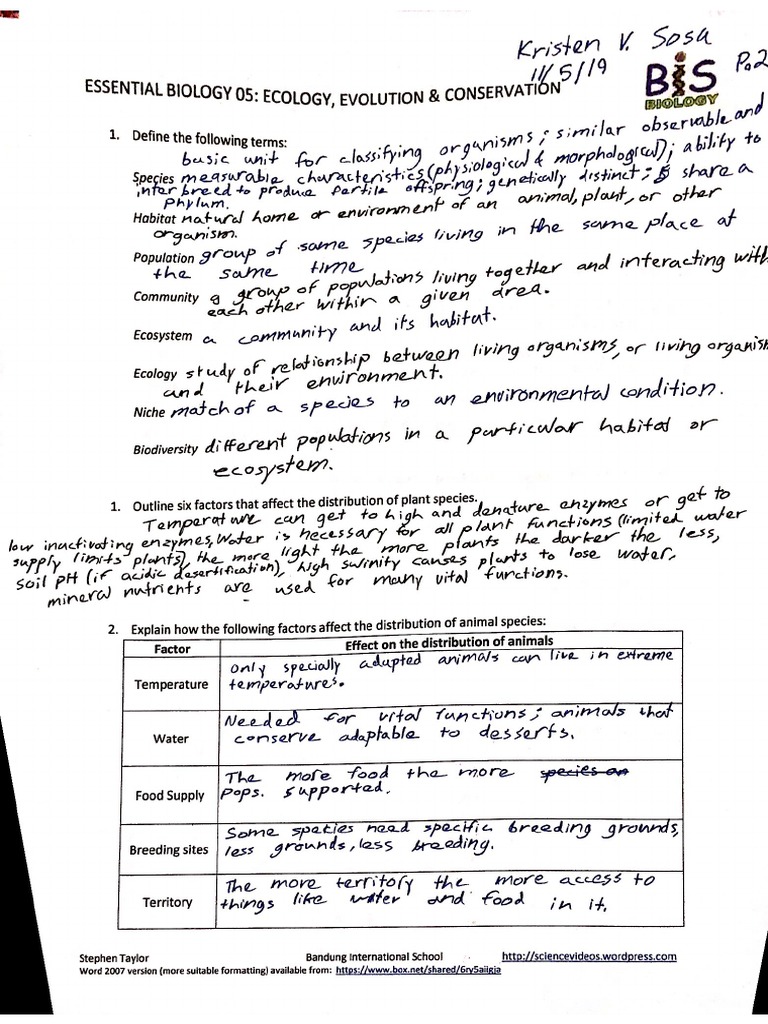 Kristen V. Sosa
11/5/19
P.2
BiS
BIOLOGY
ESSENTIAL BIOLOGY 05: ECOLOGY, EVOLUTION & CONSERVATION
1. Define the following terms:
basic unit for classifying organisms; similar observable and
Species measurable characteristics (physiological & morphological); ability to
interbreed to produce fertile offspring; genetically distinct; share a
phylum.
Habitat natural home or environment of an animal, plant, or other
organism.
Population group of same species living in the same place at
the same time
Community a group of populations living together and interacting with
each other within a given area.
Ecosystem a community and its habitat.
Ecology study of relationship between living organisms, or living organism
and their environment.
Niche match of a species to an environmental condition.
Biodiversity different populations in a particular habitat or
ecosystem.
1. Outline six factors that affect the distribution of plant species.
Temperature can get to high and denature enzymes or get to
low inactivating enzymes, Water is necessary for all plant functions (limited water
supply limits plants), the more light the more plants the darker the less,
soil pH (if acidic desertification), high swinity causes plants to lose water,
mineral nutrients are used for many vital functions.
2. Explain how the following factors affect the distribution of animal species:
Factor Effect on the distribution of animals
Temperature only specially adapted animals can live in extreme
temperatures.
Water Needed for vital functions; animals that
conserve adaptable to desserts.
Food Supply The more food the more species on
pops. supported.
Breeding sites Some species need specific breeding grounds,
less grounds, less breeding.
Territory The more territory the more access to
things like water and food in it.
Stephen Taylor Bandung International School http://sciencevideos.wordpress.com
Word 2007 version (more suitable formatting) available from: https://www.box.net/shared/6ry5aiigja